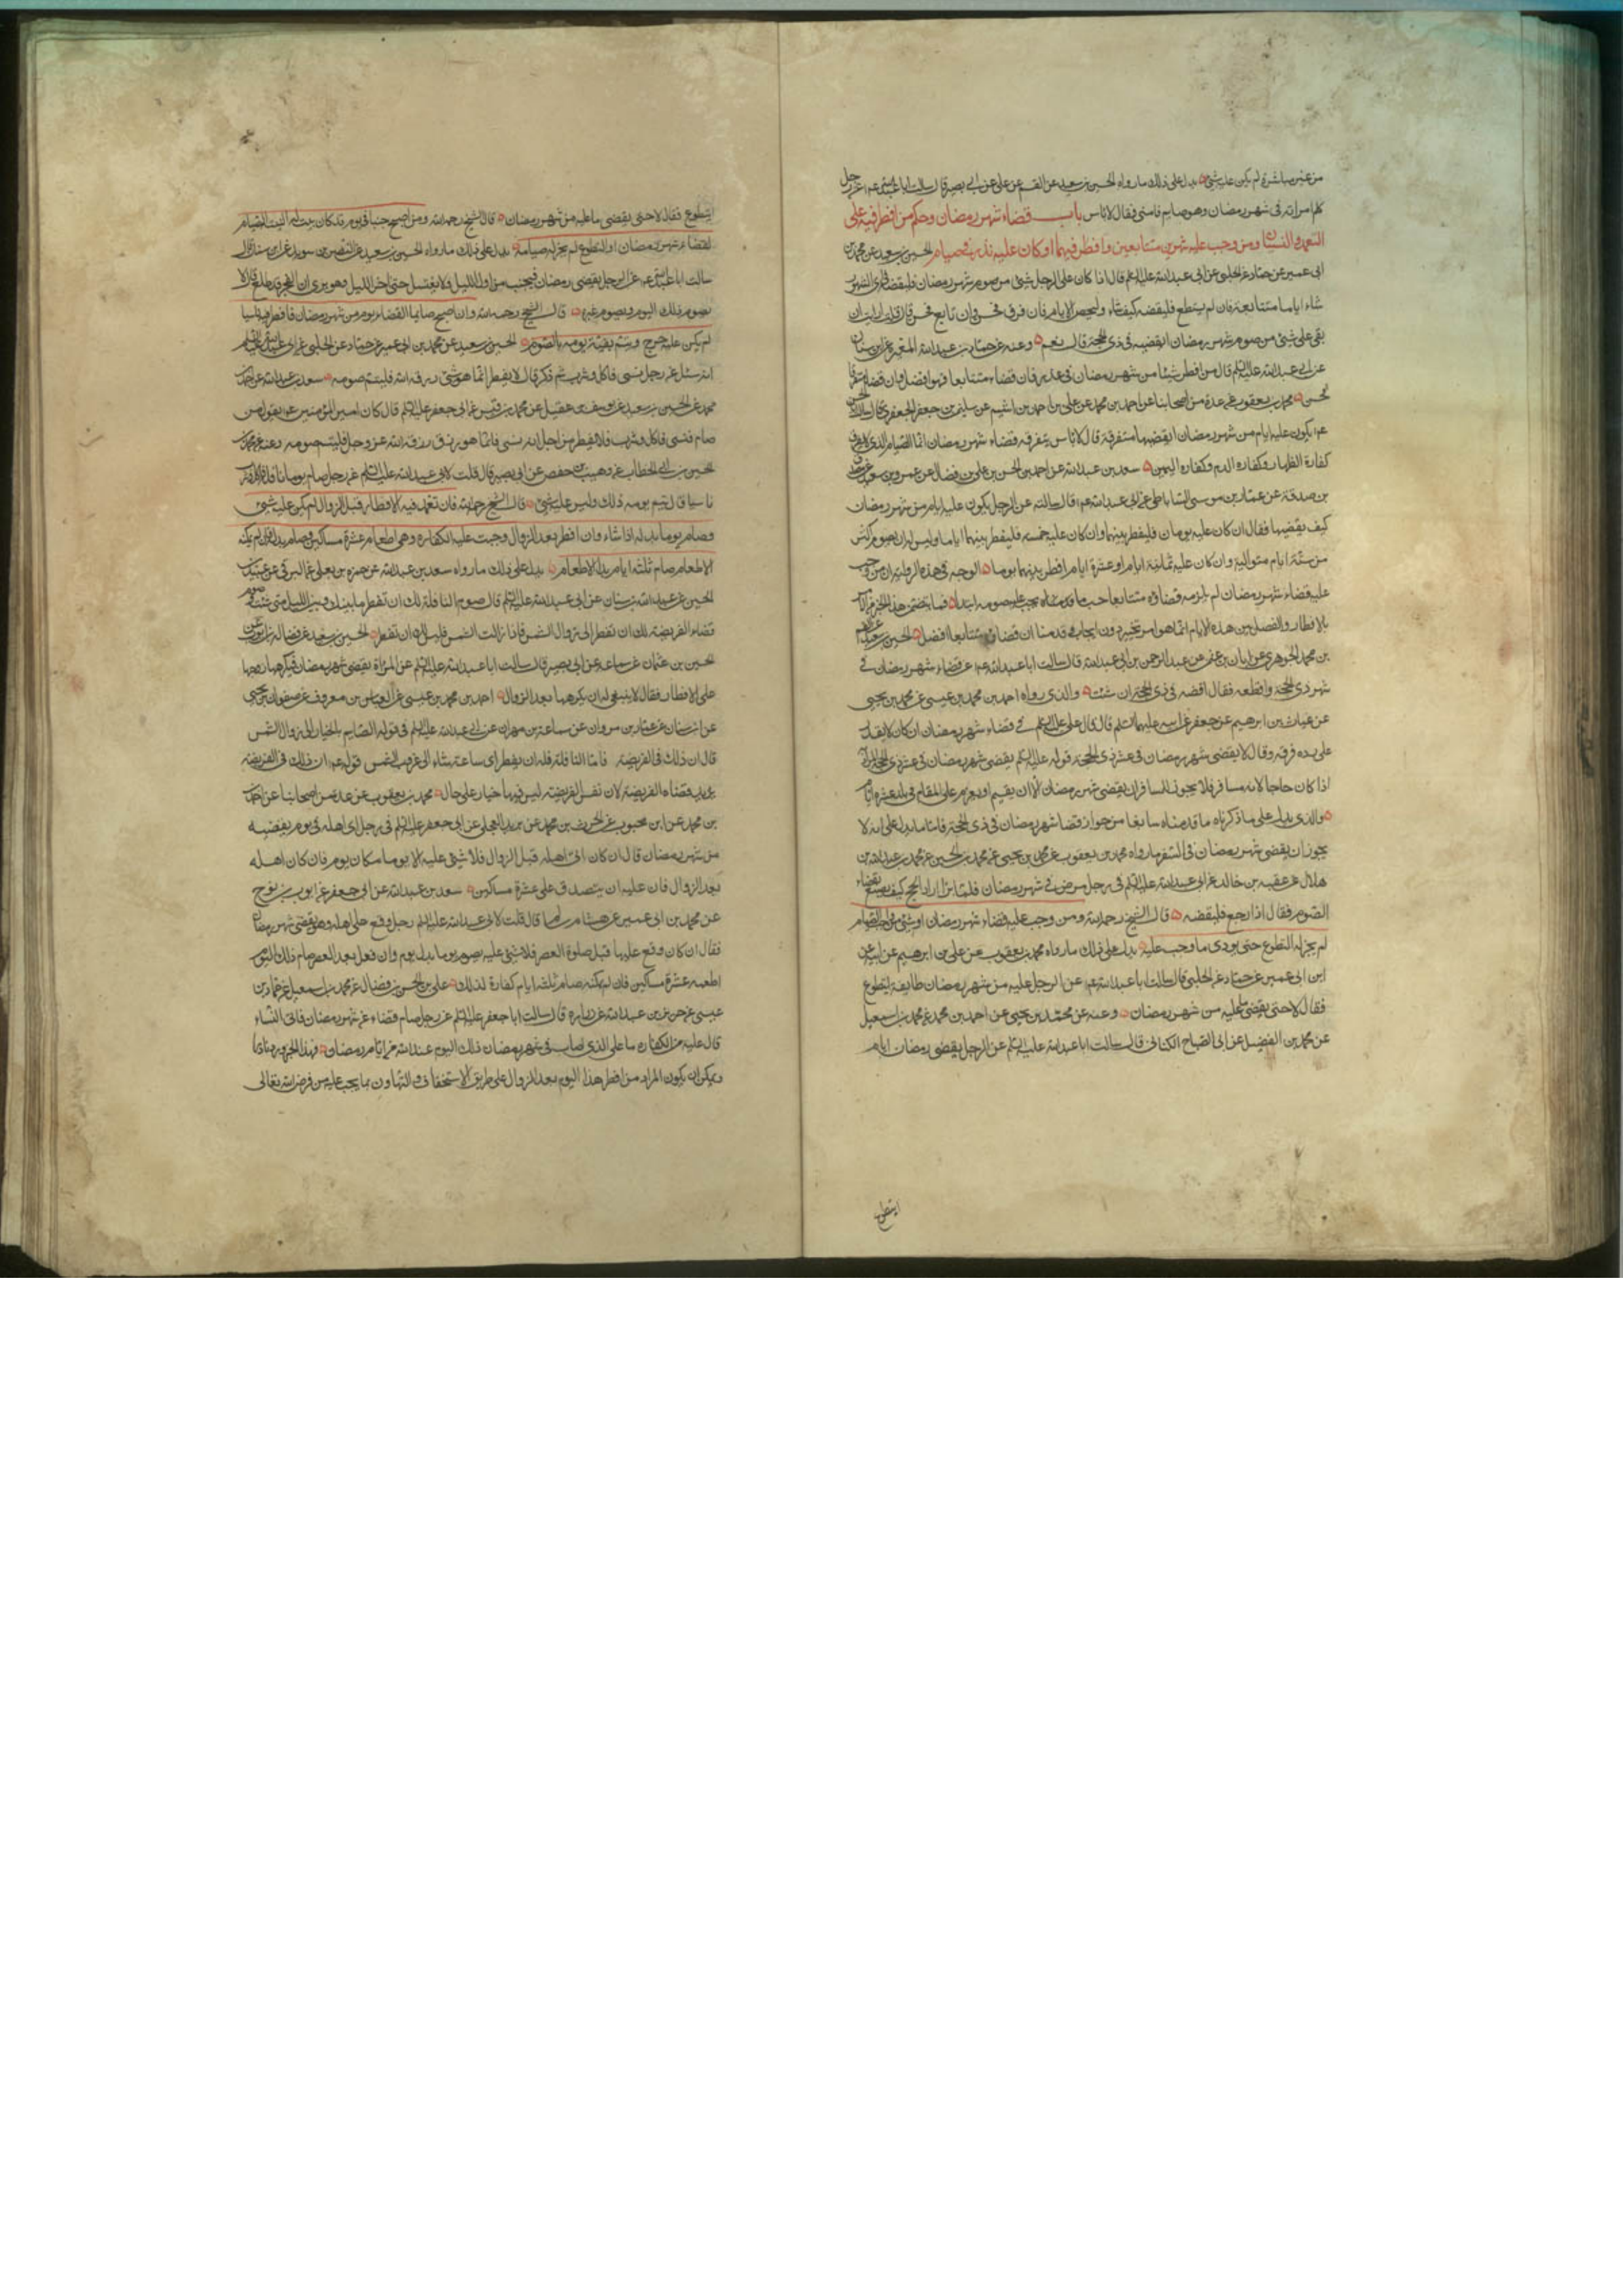 من غير مباشرة لم يكن عليه شئ يدل على ذلك ما رواه الحسين بن سعيد عن القسم عن على عن ابى بصير قال سالت ابا عبد الله عم عن رجل
كلم امراته فى شهر رمضان وهو صايم فامنى فقال لا باس باب قضاء شهر رمضان وحكم من افطر فيه على
التعمد والنسيان ومن وجب عليه شهرين متتابعين وافطر فيهما او كان عليه نذر فى صيام الحسين بن سعيد عن محمد بن
ابى عمير عن حماد عن الحلبى عن ابى عبد الله عليه السلم قال اذا كان على الرجل شئ من صوم شهر رمضان فليقضه فى اى الشهور
شاء اياما متتابعة فان لم يستطع فليقضه كيف شاء وليحص الايام فان فرق فحسن وان تابع فحسن قال قلت ارايت ان
بقى على شئ من صوم شهر رمضان اقضيه فى ذى الحجة قال نعم وعنه عن حماد عن عبد الله بن المغيره عن ابن سنان
عن ابى عبد الله عليه السلم قال من افطر شيئا من شهر رمضان فى عذر فان قضاه متتابعا فهو افضل وان قضاه متفرقا
فحسن محمد بن يعقوب عن عدة من اصحابنا عن احمد بن محمد عن على بن احمد بن اشيم عن سليمن بن جعفر الجعفرى قال سالت ابا الحسن
عم ايكون عليه ايام من شهر رمضان ايقضيها متفرقة قال لا باس بتفرقه قضاء شهر رمضان انما الصيام الذى لا يفرق
كفارة الظهار وكفاره الدم وكفاره اليمين سعد بن عبد الله عن احمد بن الحسن بن على بن فضال عن عمرو بن سعيد عن مصدق
بن صدقة عن عمار بن موسى الساباطى عن ابى عبد الله عم قال سالته عن الرجل يكون عليه ايام من شهر رمضان
كيف يقضيها فقال ان كان عليه يومان فليفطر بينهما وان كان عليه خمسه فليفطر بينهما اياما وليس له ان يصوم اكثر
من ستة ايام متوالية وان كان عليه ثمانية ايام او عشرة ايام افطر بينهما يوما الوجه فى هذه الرواية ان من وجب
عليه قضاء شهر رمضان لم يلزمه قضاؤه متتابعا
بالافطار والفصل بين هذه الايام انما هو امر تخيير دون ايجاب وقد قدمنا ان قضاؤه متتابعا افضل الحسين بن سعيد عن القسم
بن محمد الجوهرى عن ابان بن عثمن عن عبد الرحمن بن ابى عبد الله قال سالت ابا عبد الله عم عن قضاء شهر رمضان فى
شهر ذى الحجة واقطعه فقال اقضه فى ذى الحجة ان شئت والذى رواه احمد بن محمد بن عيسى عن محمد بن يحيى
عن غياث بن ابرهيم عن جعفر عن ابيه عليهما السلم قال قال على عليه السلم فى قضاء شهر رمضان ان كان لا يقدر
على سرده فرقه وقال لا يقضى شهر رمضان فى عشر ذى الحجة قوله عليه السلم لا يقضى شهر رمضان فى عشر ذى الحجة المراد
اذا كان حاجا لانه مسافر فلا يجوز للمسافر ان يقضى شهر رمضان الا ان يقيم او يعزم على المقام فى بلد عشره ايام
والذى يدل على ما ذكرناه ما قدمناه سابقا من جواز قضا شهر رمضان فى ذى الحجة فاما ما يدل على انه لا
يجوز ان يقضى شهر رمضان فى السفر ما رواه محمد بن يعقوب عن محمد بن يحيى عن محمد بن الحسين عن محمد بن عبد الله بن
هلال عن عقبه بن خالد عن ابى عبد الله عليه السلم فى رجل مرض فى شهر رمضان فلما برا اراد الحج كيف يصنع بقضاء
الصوم فقال اذا رجع فليقضه قال الشيخ رحمه الله ومن وجب عليه قضاء شهر رمضان او شئ من واجب الصيام
لم يجز له التطوع حتى يودى ما وجب عليه يدل على ذلك ما رواه محمد بن يعقوب عن على بن ابرهيم عن ابيه عن
ابن ابى عمير عن حماد عن الحلبى قال سالت ابا عبد الله عم عن الرجل عليه من شهر رمضان طايفة ايتطوع
فقال لا حتى يقضى ما عليه من شهر رمضان وعنه عن محمد بن يحيى عن احمد بن محمد عن محمد بن اسمعيل
عن محمد بن الفضيل عن ابى الصباح الكنانى قال سالت ابا عبد الله عليه السلم عن الرجل يقضى رمضان ايام
ايتطوع
ايتطوع فقال لا حتى يقضى ما عليه من شهر رمضان قال الشيخ رحمه الله ومن اصبح جنبا فى يوم قد كان بيت له النية للصيام
لقضاء شهر رمضان او التطوع لم يجز له صيامه يدل على ذلك ما رواه الحسين بن سعيد عن النضر بن سويد عن ابن سنان قال
سالت ابا عبد الله عم عن الرجل يقضى رمضان فيجنب من اول الليل ولا يغتسل حتى اخر الليل وهو يرى ان الفجر قد طلع قال لا
يصوم ذلك اليوم ويصوم غيره قال الشيخ رحمه الله وان اصبح صايما لقضاء يوم من شهر رمضان فافطر فيه ناسيا
لم يكن عليه حرج وتمم بقية يومه بالصوم الحسين بن سعيد عن محمد بن ابى عمير عن حماد عن الحلبى عن ابى عبد الله عليه السلم
انه سئل عن رجل نسى فاكل وشرب ثم ذكر قال لا يفطر انما هو شئ رزقه الله فليتم صومه سعد بن عبد الله عن احمد بن
محمد عن الحسين بن سعيد عن يوسف بن عقيل عن محمد بن قيس عن ابى جعفر عليه السلم قال كان امير المؤمنين عم يقول من
صام فنسى فاكل وشرب فلا يفطر من اجل انه نسى فانما هو رزق رزقه الله عز وجل فليتم صومه وعنه عن محمد بن
الحسين بن ابى الخطاب عن وهيب بن حفص عن ابى بصير قال قلت لابى عبد الله عليه السلم عن رجل صام يوما نافلة فاكل وشرب
ناسيا قال يتم يومه ذلك وليس عليه شئ قال الشيخ رحمه الله فان تعمد فيه الافطار قبل الزوال لم يكن عليه شئ
وصام يوما بدله اذا شاء وان افطر بعد الزوال وجبت عليه الكفاره وهى اطعام عشرة مساكين وصام بدله فان لم يمكنه
الاطعام صام ثلثه ايام بدل الاطعام يدل على ذلك ما رواه سعد بن عبد الله عن حمزه بن يعلى عن البرقى عن عبيد بن
الحسين عن عبد الله بن سنان عن ابى عبد الله عليه السلم قال صوم النافلة لك ان تفطر ما بينك وبين الليل متى شئت وصوم
قضاء الفريضة لك ان تفطر الى زوال الشمس فاذا زالت الشمس فليس لك ان تفطر الحسين بن سعيد عن فضالة بن ايوب عن
الحسين بن عثمان عن سماعه عن ابى بصير قال سالت ابا عبد الله عليه السلم عن المراة تقضى شهر رمضان فيكرهها زوجها
على الافطار فقال لا ينبغى له ان يكرهها بعد الزوال احمد بن محمد بن عيسى عن العباس بن معروف عن صفوان بن يحيى
عن ابن سنان عن عمار بن مروان عن سماعة بن مهران عن ابى عبد الله عليه السلم فى قوله الصايم بالخيار الى زوال الشمس
قال ان ذلك فى الفريضة فاما النافلة فله ان يفطر اى ساعة شاء الى غروب الشمس قوله عم ان ذلك فى الفريضة
يريد قضاء الفريضة لان نفس الفريضة ليس فيها خيار على حال محمد بن يعقوب عن عدة من اصحابنا عن احمد
بن محمد عن ابن محبوب عن الحرث بن محمد عن بريد العجلى عن ابى جعفر عليه السلم فى رجل اتى اهله فى يوم يقضيه
من شهر رمضان قال ان كان اتى اهله قبل الزوال فلا شئ عليه الا يوما مكان يوم فان كان اهله
بعد الزوال فان عليه ان يتصدق على عشرة مساكين سعد بن عبد الله عن ابى جعفر عن ايوب بن نوح
عن محمد بن ابى عمير عن هشام بن سالم قال قلت لابى عبد الله عليه السلم رجل وقع على اهله وهو يقضى شهر رمضان
فقال ان كان وقع عليها قبل صلوة العصر فلا شئ عليه يصوم يوما بدل يوم وان فعل بعد العصر صام ذلك اليوم
اطعم عشرة مساكين فان لم يمكنه صام ثلثة ايام كفارة لذلك على بن الحسن بن فضال عن محمد بن اسمعيل عن حماد بن
عيسى عن حريز بن عبد الله عن زراره قال سالت ابا جعفر عليه السلم عن رجل صام قضاء عن شهر رمضان فاتى النساء
قال عليه من الكفاره ما على الذى اصاب فى شهر رمضان ذلك اليوم عند الله من ايام رمضان
ويمكن ان يكون المراد من افطر هذا اليوم بعد الزوال على طريق الاستخفاف والتهاون بما يجب عليه من فرض الله تعالى